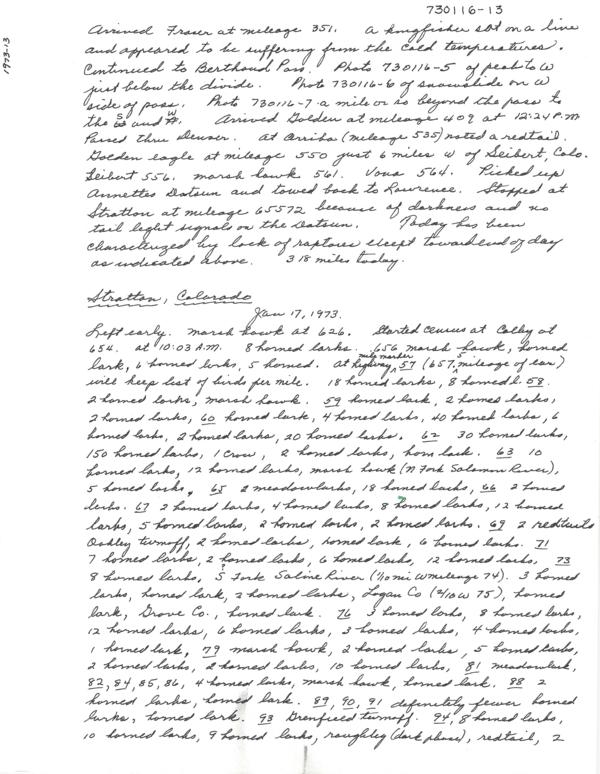 730116-13
1973-13
Arrived Fraser at mileage 351. A kingfisher sat on a line
and appeared to be suffering from the cold temperatures.
Continued to Berthoud Pass. Photo 730116-5 of peak to W
just below the divide. Photo 730116-6 of snowslide on W
side of pass. Photo 730116-7 a mile or so beyond the pass to
the S and W. Arrived Golden at mileage 409 at 12:24 P.M
Passed thru Denver. At Arriba (mileage 535) noted a redtail.
Golden eagle at mileage 550 just 6 miles W of Seibert, Colo.
Seibert 556. marsh hawk 561. Vona 564. Picked up
Annettes Datsun and towed back to Lawrence. Stopped at
Stratton at mileage 65572 because of darkness and no
tail light signals on the Datsun. Today has been
characterized by lack of raptores except toward end of day
as indicated above. 318 miles today.
Stratton, Colorado
Jan 17, 1973.
Left early. marsh hawk at 626. Started census at Colby at
654. at 10:03 A.M. 8 horned larks. 656 marsh hawk, horned
lark, 6 horned larks, 5 horned. At highway mile marker 57 (657.5 mileage of car)
will keep list of birds per mile. 18 horned larks, 8 horned l. 58.
2 horned larks, marsh hawk. 59 horned lark, 2 horned larks,
2 horned larks, 60 horned lark, 4 horned larks, 40 horned larks, 6
horned larks, 2 horned larks, 20 horned larks. 62 30 horned larks,
150 horned larks, 1 crow, 2 horned larks, horn lark. 63 10
horned larks, 12 horned larks, marsh hawk (N Fork Solomon River),
5 horned larks, 65 2 meadowlarks, 18 horned larks, 66 2 horned
larks. 67 2 horned larks, 4 horned larks, 8 horned larks, 12 horned
larks, 5 horned larks, 2 horned larks, 2 horned larks. 69 2 redtails
Oakley turnoff, 2 horned larks, horned lark, 6 horned larks. 71
7 horned larks, 2 horned larks, 6 horned larks, 12 horned larks, 73
8 horned larks, S Fork Saline River (1/10 mi W mileage 74). 3 horned
larks, horned lark, 2 horned larks, Logan Co (2/10 W 75), horned
lark, Grove Co., horned lark. 76 3 horned larks, 8 horned larks,
12 horned larks, 6 horned larks, 3 horned larks, 4 horned larks,
1 horned lark, 79 marsh hawk, 2 horned larks, 5 horned larks,
2 horned larks, 2 horned larks, 10 horned larks, 81 meadowlark,
82, 84, 85, 86, 4 horned larks, marsh hawk, horned lark. 88 2
horned larks, horned lark. 89, 90, 91 definitely fewer horned
larks, horned lark. 93 Grenfield turnoff. 94, 8 horned larks,
10 horned larks, 9 horned larks, roughleg (dark phase), redtail, 2